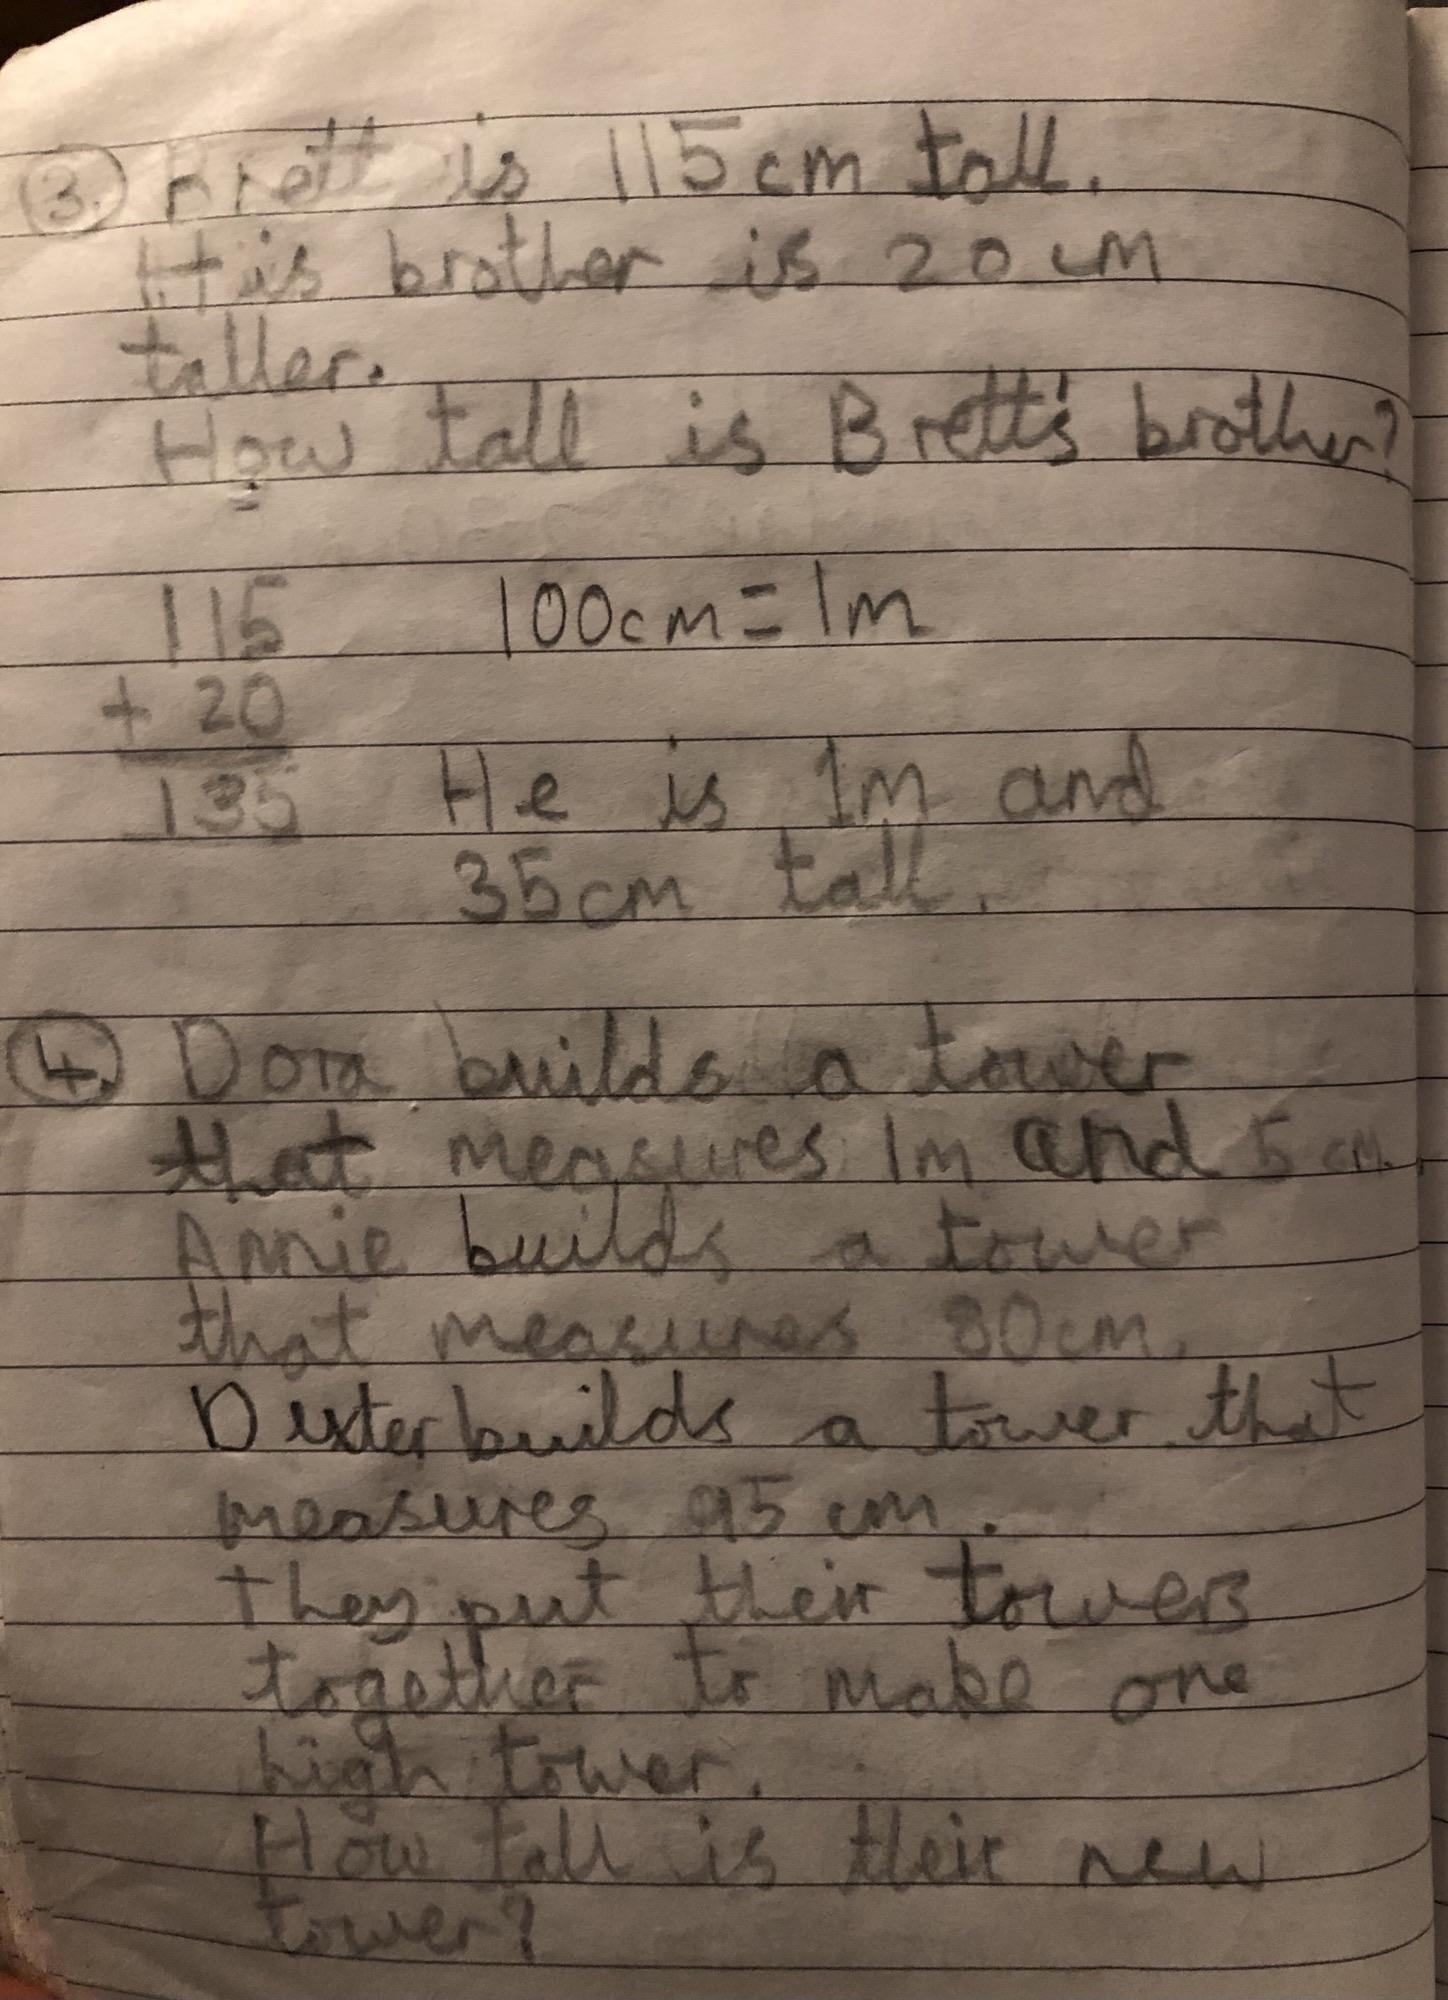 3. Brett is 115cm tall.
His brother is 20cm
taller.
How tall is Brett's brother?
115 100cm=1m
+ 20
135 He is 1m and
35cm tall.
4. Dora builds a tower
that measures 1m and 5cm.
Annie builds a tower
that measures 80cm.
Dexter builds a tower that
measures 95cm.
They put their towers
together to make one
high tower.
How tall is their new
tower?